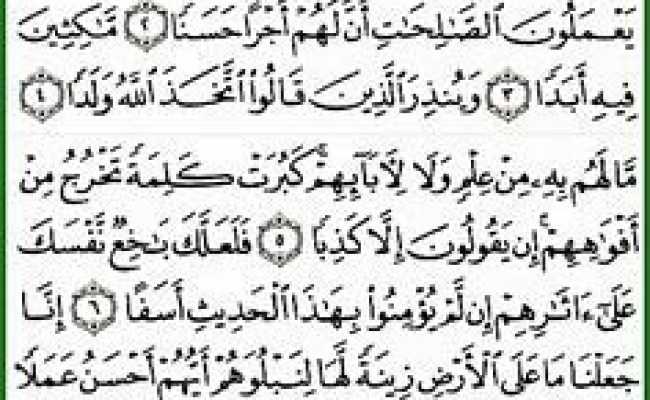 يَعْمَلُونَ ٱلصَّـٰلِحَـٰتِ أَنَّ لَهُمْ أَجْرًا حَسَنًا ٢ مَّـٰكِثِينَ
فِيهِ أَبَدًا ٣ وَيُنذِرَ ٱلَّذِينَ قَالُوا۟ ٱتَّخَذَ ٱللَّهُ وَلَدًا ٤
مَّا لَهُم بِهِۦ مِنْ عِلْمٍ وَلَا لِـَٔابَآئِهِمْ ۚ كَبُرَتْ كَلِمَةً تَخْرُجُ مِنْ
أَفْوَٰهِهِمْ ۚ إِن يَقُولُونَ إِلَّا كَذِبًا ٥ فَلَعَلَّكَ بَـٰخِعٌ نَّفْسَكَ
عَلَىٰٓ ءَاثَـٰرِهِمْ إِن لَّمْ يُؤْمِنُوا۟ بِهَـٰذَا ٱلْحَدِيثِ أَسَفًا ٦ إِنَّا
جَعَلْنَا مَا عَلَى ٱلْأَرْضِ زِينَةً لَّهَا لِنَبْلُوَهُمْ أَيُّهُمْ أَحْسَنُ عَمَلًا